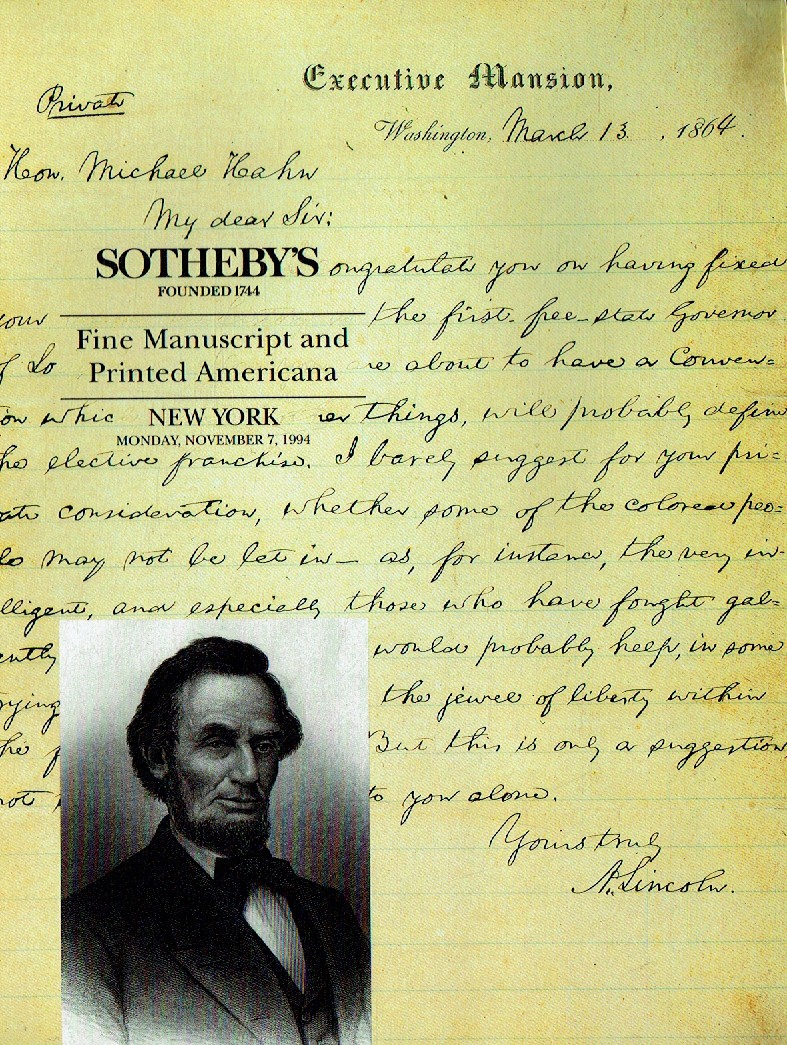 Executive Mansion,
Private
Washington, March 13, 1864.
Hon. Michael Hahn
My dear Sir:
SOTHEBY'S
FOUNDED 1744
ongratulate you on having fixed
your
the first-free-state Governor
Fine Manuscript and
Printed Americana
f Lo
re about to have a Conven=
on whic
NEW YORK
er things, will probably define
MONDAY, NOVEMBER 7, 1994
he elective franchise. I barely suggest for your pri=
ate consideration, whether some of the colored peo=
le may not be let in— as, for instance, the very in-
lligent, and especially those who have fought gal=
ently
would probably help, in some
rying
the jewel of liberty within
he f
But this is only a suggestion,
not
to you alone.
Yours truly
A. Lincoln.